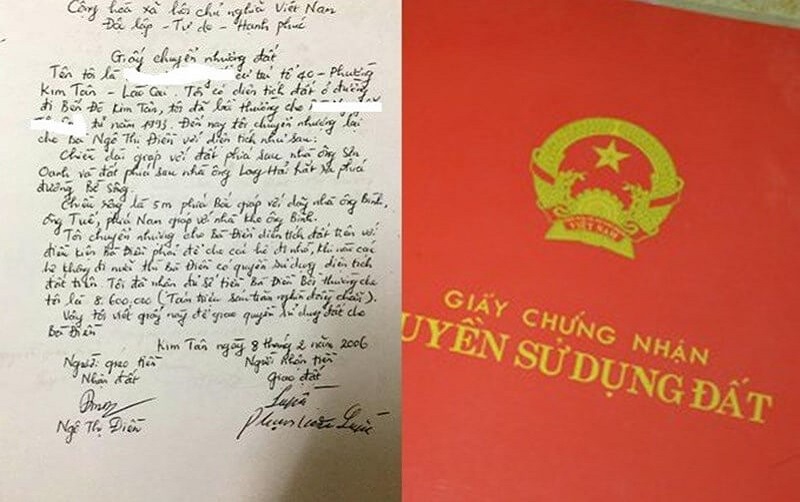 Cộng hoà xã hội chủ nghĩa Việt Nam
Độc lập - Tự do - Hạnh phúc
Giấy chuyển nhượng đất
Tên tôi là cư trú tổ 40 - Phường
Kim Tân - Lào Cai. Tôi có diện tích đất ở đường
đi Bến Đá Kim Tân, tôi đã bồi thường cho
từ năm 1993. Đến nay tôi chuyển nhượng lại
cho Bà Ngô Thị Điền với diện tích như sau:
Chiều dài giáp với đất phía sau nhà ông Sơn
Oanh và đất phía sau nhà ông Long Hải hất ra phía
đường Bờ Sông.
Chiều rộng là 5m phía Bắc giáp với nhà ông Bình,
ông Tuế, phía Nam giáp với nhà kho ông Bình.
Tôi chuyển nhượng cho Bà Điền diện tích đất trên với
điều kiện Bà Điền phải để cho các hộ đi nhờ, khi nào các
hộ không đi nữa thì Bà Điền có quyền sử dụng diện tích
đất trên. Tôi đã nhận đủ số tiền Bà Điền Bồi thường cho
tôi là 8.600.000 (Tám triệu sáu trăm nghìn đồng chẵn).
Vậy tôi viết giấy này để giao quyền sử dụng đất cho
Bà Điền
Kim Tân ngày 8 tháng 2 năm 2006
Người giao tiền
Nhận đất
Ngô Thị Điền
Người nhận tiền
Giao đất
VIỆT NAM
GIẤY CHỨNG NHẬN
QUYỀN SỬ DỤNG ĐẤT